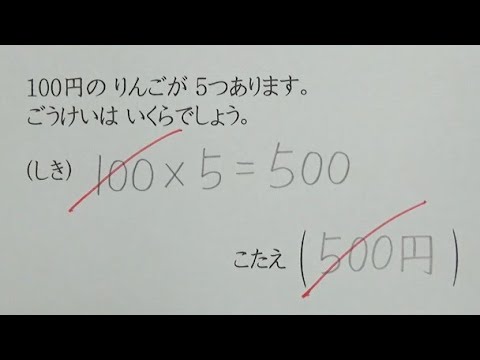 100円の りんごが 5つあります。
ごうけいは いくらでしょう。
(しき) 100×5=500
こたえ (500円)